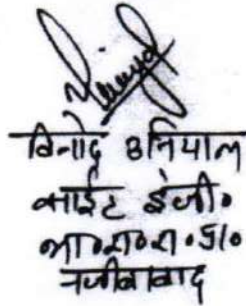 विनोद उनियाल
साईट इंजी०
भा०रा०रा०प्रा०
नजीबाबाद